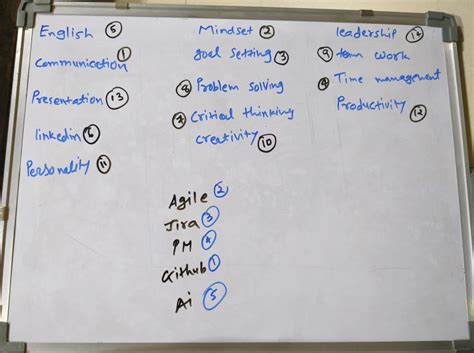 English 5
Communication 1
Presentation 13
linkedin 6
Personality 11
Mindset 2
goal setting 3
8 Problem solving
7 Critical thinking
creativity 10
leadership 14
9 team work
Time management
Productivity 12
Agile 2
Jira 3
PM 4
Github 1
Ai 5